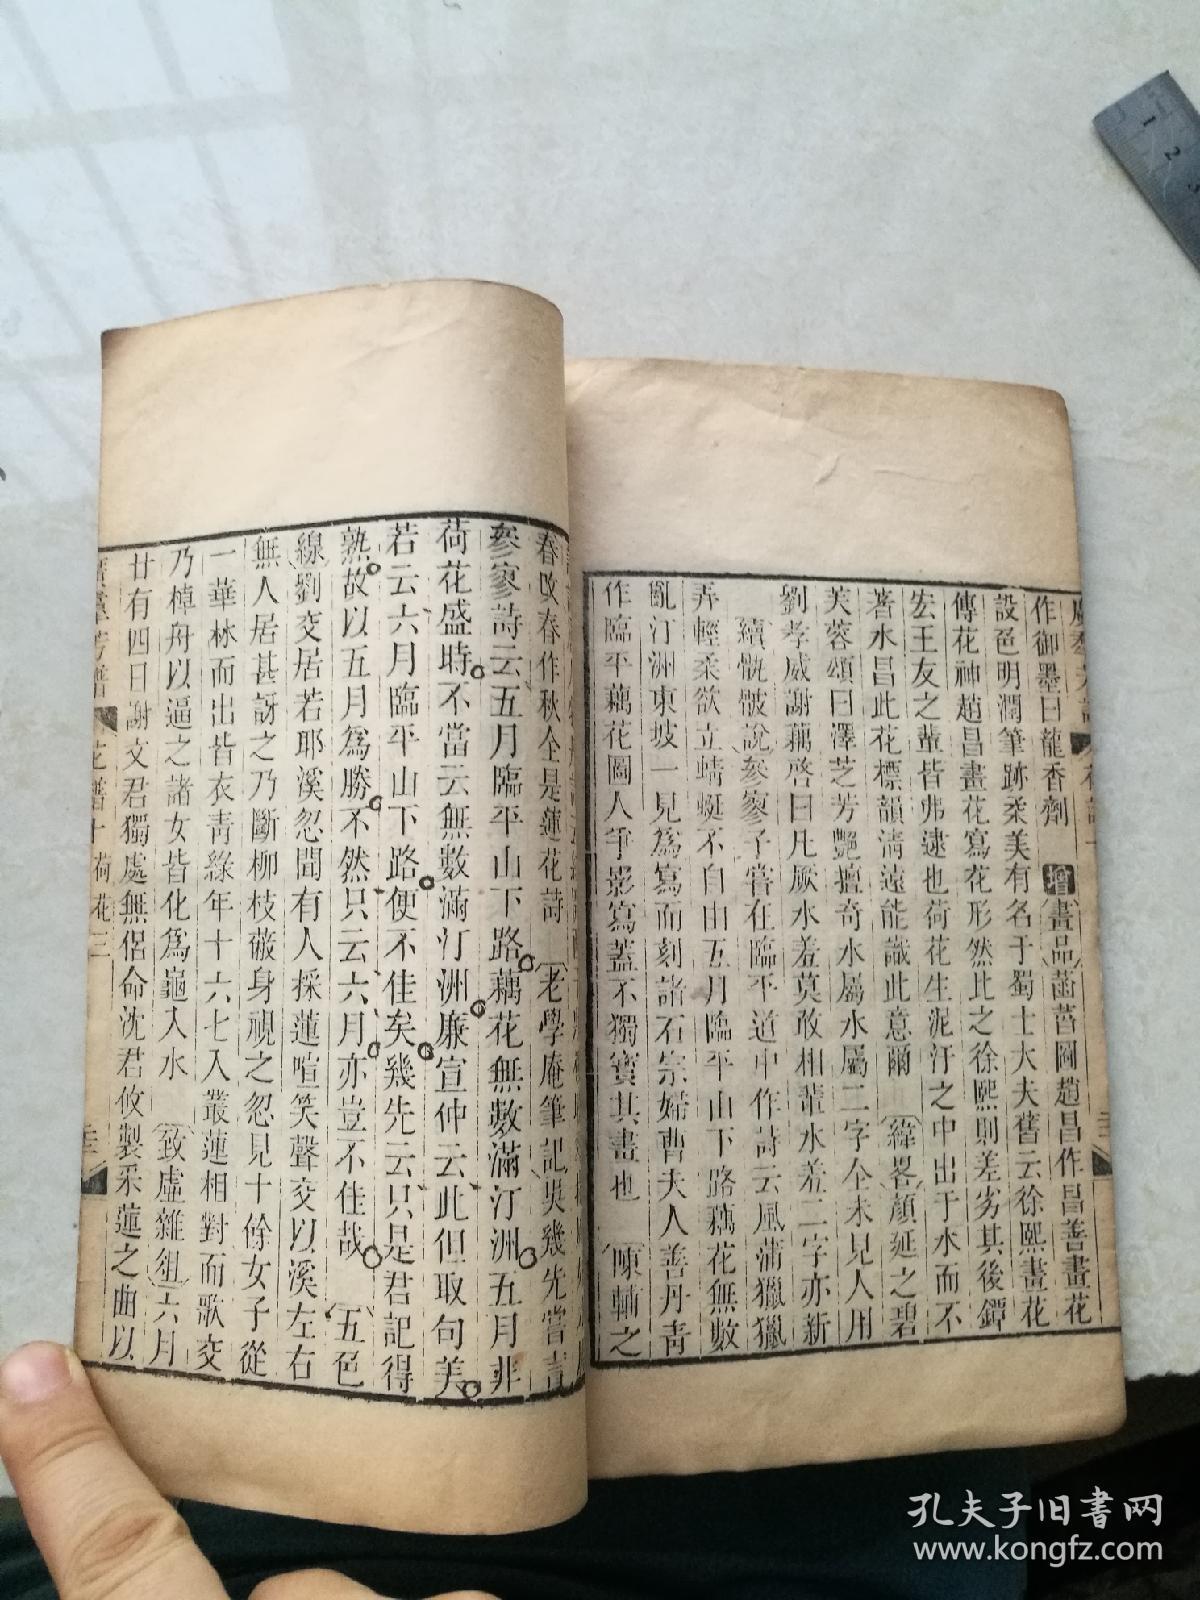 作御墨曰龍香劑　增　畫品　菡萏圖趙昌作昌善畫花
設色明潤筆跡柔美有名于蜀士大夫舊云徐熙畫花
傳花神趙昌畫花寫花形然比之徐熙則差劣其後鐔
宏王友之輩皆弗逮也荷花生泥汙之中出于水而不
著水昌此花標韻淸遠能識此意爾　緯畧　顔延之碧
芙蓉頌曰澤芝芳艷擅奇水屬水屬二字仝未見人用
劉孝威謝藕啓曰凡厥水羞莫敢相輩水羞二字亦新
續骫骳說　參寥子嘗在臨平道中作詩云風蒲獵獵
弄輕柔欲立蜻蜓不自由五月臨平山下路藕花無數
亂汀洲東坡一見爲寫而刻諸石宗婦曹夫人善丹靑
作臨平藕花圖人爭影寫蓋不獨寶其畫也　陳輔之
春攺春作秋仝是蓮花詩　老學庵筆記　吳幾先嘗言
參寥詩云五月臨平山下路藕花無數滿汀洲五月非
荷花盛時不當云無數滿汀洲廉宣仲云此但取句美
若云六月臨平山下路便不佳矣幾先云只是君記得
熟故以五月爲勝不然只云六月亦豈不佳哉　五色
線　劉交居若耶溪忽聞有人採蓮喧笑聲交以溪左右
無人居甚訝之乃斷柳枝蔽身視之忽見十餘女子從
一華林而出皆衣靑綠年十六七入叢蓮相對而歌交
乃棹舟以逼之諸女皆化爲龜入水　致虛雜俎　六月
廿有四日謝文君獨處無侶命沈君攸製采蓮之曲以
花譜十荷花三
孔夫子旧书网
www.kongfz.com
1
2